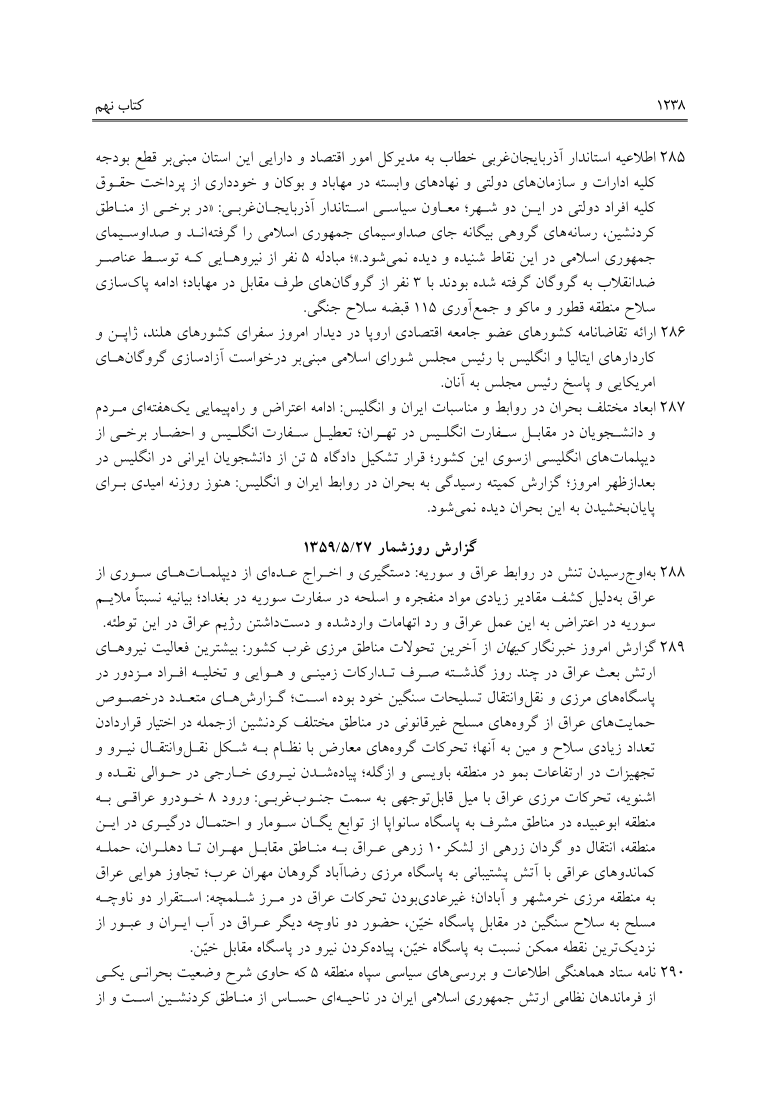 ۱۲۳۸ کتاب نهم
۲۸۵ اطلاعیه استاندار آذربایجان‌غربی خطاب به مدیرکل امور اقتصاد و دارایی این استان مبنی‌بر قطع بودجه
کلیه ادارات و سازمان‌های دولتی و نهادهای وابسته در مهاباد و بوکان و خودداری از پرداخت حقوق
کلیه افراد دولتی در این دو شهر؛ معاون سیاسی استاندار آذربایجان‌غربی: «در برخی از مناطق
کردنشین، رسانه‌های گروهی بیگانه جای صداوسیمای جمهوری اسلامی را گرفته‌اند و صداوسیمای
جمهوری اسلامی در این نقاط شنیده و دیده نمی‌شود.»؛ مبادله ۵ نفر از نیروهایی که توسط عناصر
ضدانقلاب به گروگان گرفته شده بودند با ۳ نفر از گروگان‌های طرف مقابل در مهاباد؛ ادامه پاک‌سازی
سلاح منطقه قطور و ماکو و جمع‌آوری ۱۱۵ قبضه سلاح جنگی.
۲۸۶ ارائه تقاضانامه کشورهای عضو جامعه اقتصادی اروپا در دیدار امروز سفرای کشورهای هلند، ژاپن و
کاردارهای ایتالیا و انگلیس با رئیس مجلس شورای اسلامی مبنی‌بر درخواست آزادسازی گروگان‌های
امریکایی و پاسخ رئیس مجلس به آنان.
۲۸۷ ابعاد مختلف بحران در روابط و مناسبات ایران و انگلیس: ادامه اعتراض و راه‌پیمایی یک‌هفته‌ای مردم
و دانشجویان در مقابل سفارت انگلیس در تهران؛ تعطیل سفارت انگلیس و احضار برخی از
دیپلمات‌های انگلیسی ازسوی این کشور؛ قرار تشکیل دادگاه ۵ تن از دانشجویان ایرانی در انگلیس در
بعدازظهر امروز؛ گزارش کمیته رسیدگی به بحران در روابط ایران و انگلیس: هنوز روزنه امیدی برای
پایان‌بخشیدن به این بحران دیده نمی‌شود.
گزارش روزشمار ۱۳۵۹/۵/۲۷
۲۸۸ به‌اوج‌رسیدن تنش در روابط عراق و سوریه: دستگیری و اخراج عده‌ای از دیپلمات‌های سوری از
عراق به‌دلیل کشف مقادیر زیادی مواد منفجره و اسلحه در سفارت سوریه در بغداد؛ بیانیه نسبتاً ملایم
سوریه در اعتراض به این عمل عراق و رد اتهامات واردشده و دست‌داشتن رژیم عراق در این توطئه.
۲۸۹ گزارش امروز خبرنگار کیهان از آخرین تحولات مناطق مرزی غرب کشور: بیشترین فعالیت نیروهای
ارتش بعث عراق در چند روز گذشته صرف تدارکات زمینی و هوایی و تخلیه افراد مزدور در
پاسگاه‌های مرزی و نقل‌وانتقال تسلیحات سنگین خود بوده است؛ گزارش‌های متعدد درخصوص
حمایت‌های عراق از گروه‌های مسلح غیرقانونی در مناطق مختلف کردنشین ازجمله در اختیار قراردادن
تعداد زیادی سلاح و مین به آنها؛ تحرکات گروه‌های معارض با نظام به شکل نقل‌وانتقال نیرو و
تجهیزات در ارتفاعات بمو در منطقه باویسی و ازگله؛ پیاده‌شدن نیروی خارجی در حوالی نقده و
اشنویه، تحرکات مرزی عراق با میل قابل‌توجهی به سمت جنوب‌غربی: ورود ۸ خودرو عراقی به
منطقه ابوعبیده در مناطق مشرف به پاسگاه سانواپا از توابع یگان سومار و احتمال درگیری در این
منطقه، انتقال دو گردان زرهی از لشکر۱۰ زرهی عراق به مناطق مقابل مهران تا دهلران، حمله
کماندوهای عراقی با آتش پشتیبانی به پاسگاه مرزی رضاآباد گروهان مهران عرب؛ تجاوز هوایی عراق
به منطقه مرزی خرمشهر و آبادان؛ غیرعادی‌بودن تحرکات عراق در مرز شلمچه: استقرار دو ناوچه
مسلح به سلاح سنگین در مقابل پاسگاه خیّن، حضور دو ناوچه دیگر عراق در آب ایران و عبور از
نزدیک‌ترین نقطه ممکن نسبت به پاسگاه خیّن، پیاده‌کردن نیرو در پاسگاه مقابل خیّن.
۲۹۰ نامه ستاد هماهنگی اطلاعات و بررسی‌های سیاسی سپاه منطقه ۵ که حاوی شرح وضعیت بحرانی یکی
از فرماندهان نظامی ارتش جمهوری اسلامی ایران در ناحیه‌ای حساس از مناطق کردنشین است و از